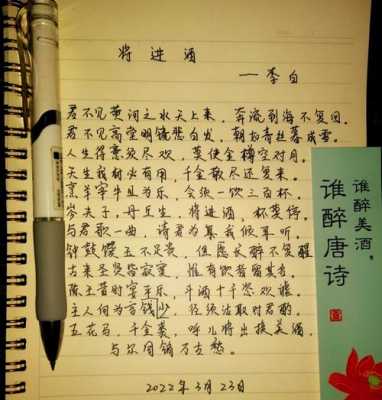 将进酒
——李白
君不见黄河之水天上来，奔流到海不复回。
君不见高堂明镜悲白发，朝如青丝暮成雪。
人生得意须尽欢，莫使金樽空对月。
天生我材必有用，千金散尽还复来。
烹羊宰牛且为乐，会须一饮三百杯。
岑夫子，丹丘生，将进酒，杯莫停。
与君歌一曲，请君为我倾耳听。
钟鼓馔玉不足贵，但愿长醉不复醒
古来圣贤皆寂寞，惟有饮者留其名。
陈王昔时宴平乐，斗酒十千恣欢谑。
主人何为言钱少，径须沽取对君酌。
五花马，千金裘，呼儿将出换美酒，
与尔同销万古愁。
2022年3月23日
谁醉美酒，
谁醉唐诗